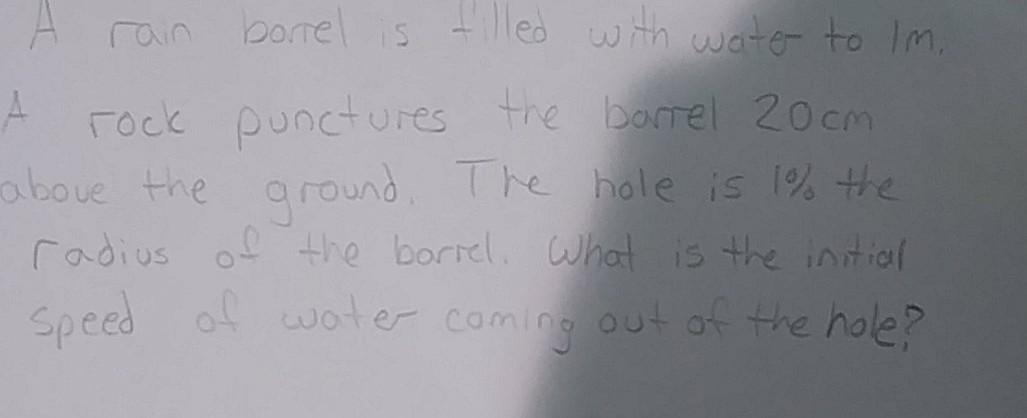 A rain barrel is filled with water to 1m.
A rock punctures the barrel 20cm
above the ground. The hole is 1% the
radius of the barrel. What is the initial
speed of water coming out of the hole?